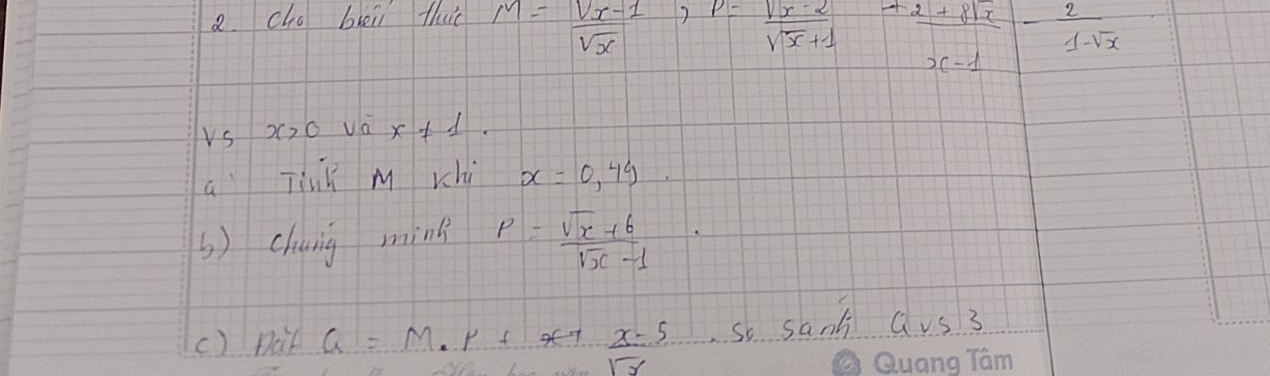 2. Cho biểu thức M = (√x - 1)/√x ; P = (√x - 2)/(√x + 1) + (2 + 8√x)/(x - 1) - 2/(1 - √x)
vs x > 0 và x ≠ 1.
a) Tính M khi x = 0,49.
b) Chứng minh P = (√x + 6)/(√x - 1).
c) Đặt Q = M.P + (x - 5)/√x. So sánh Q vs 3
Quang Tâm